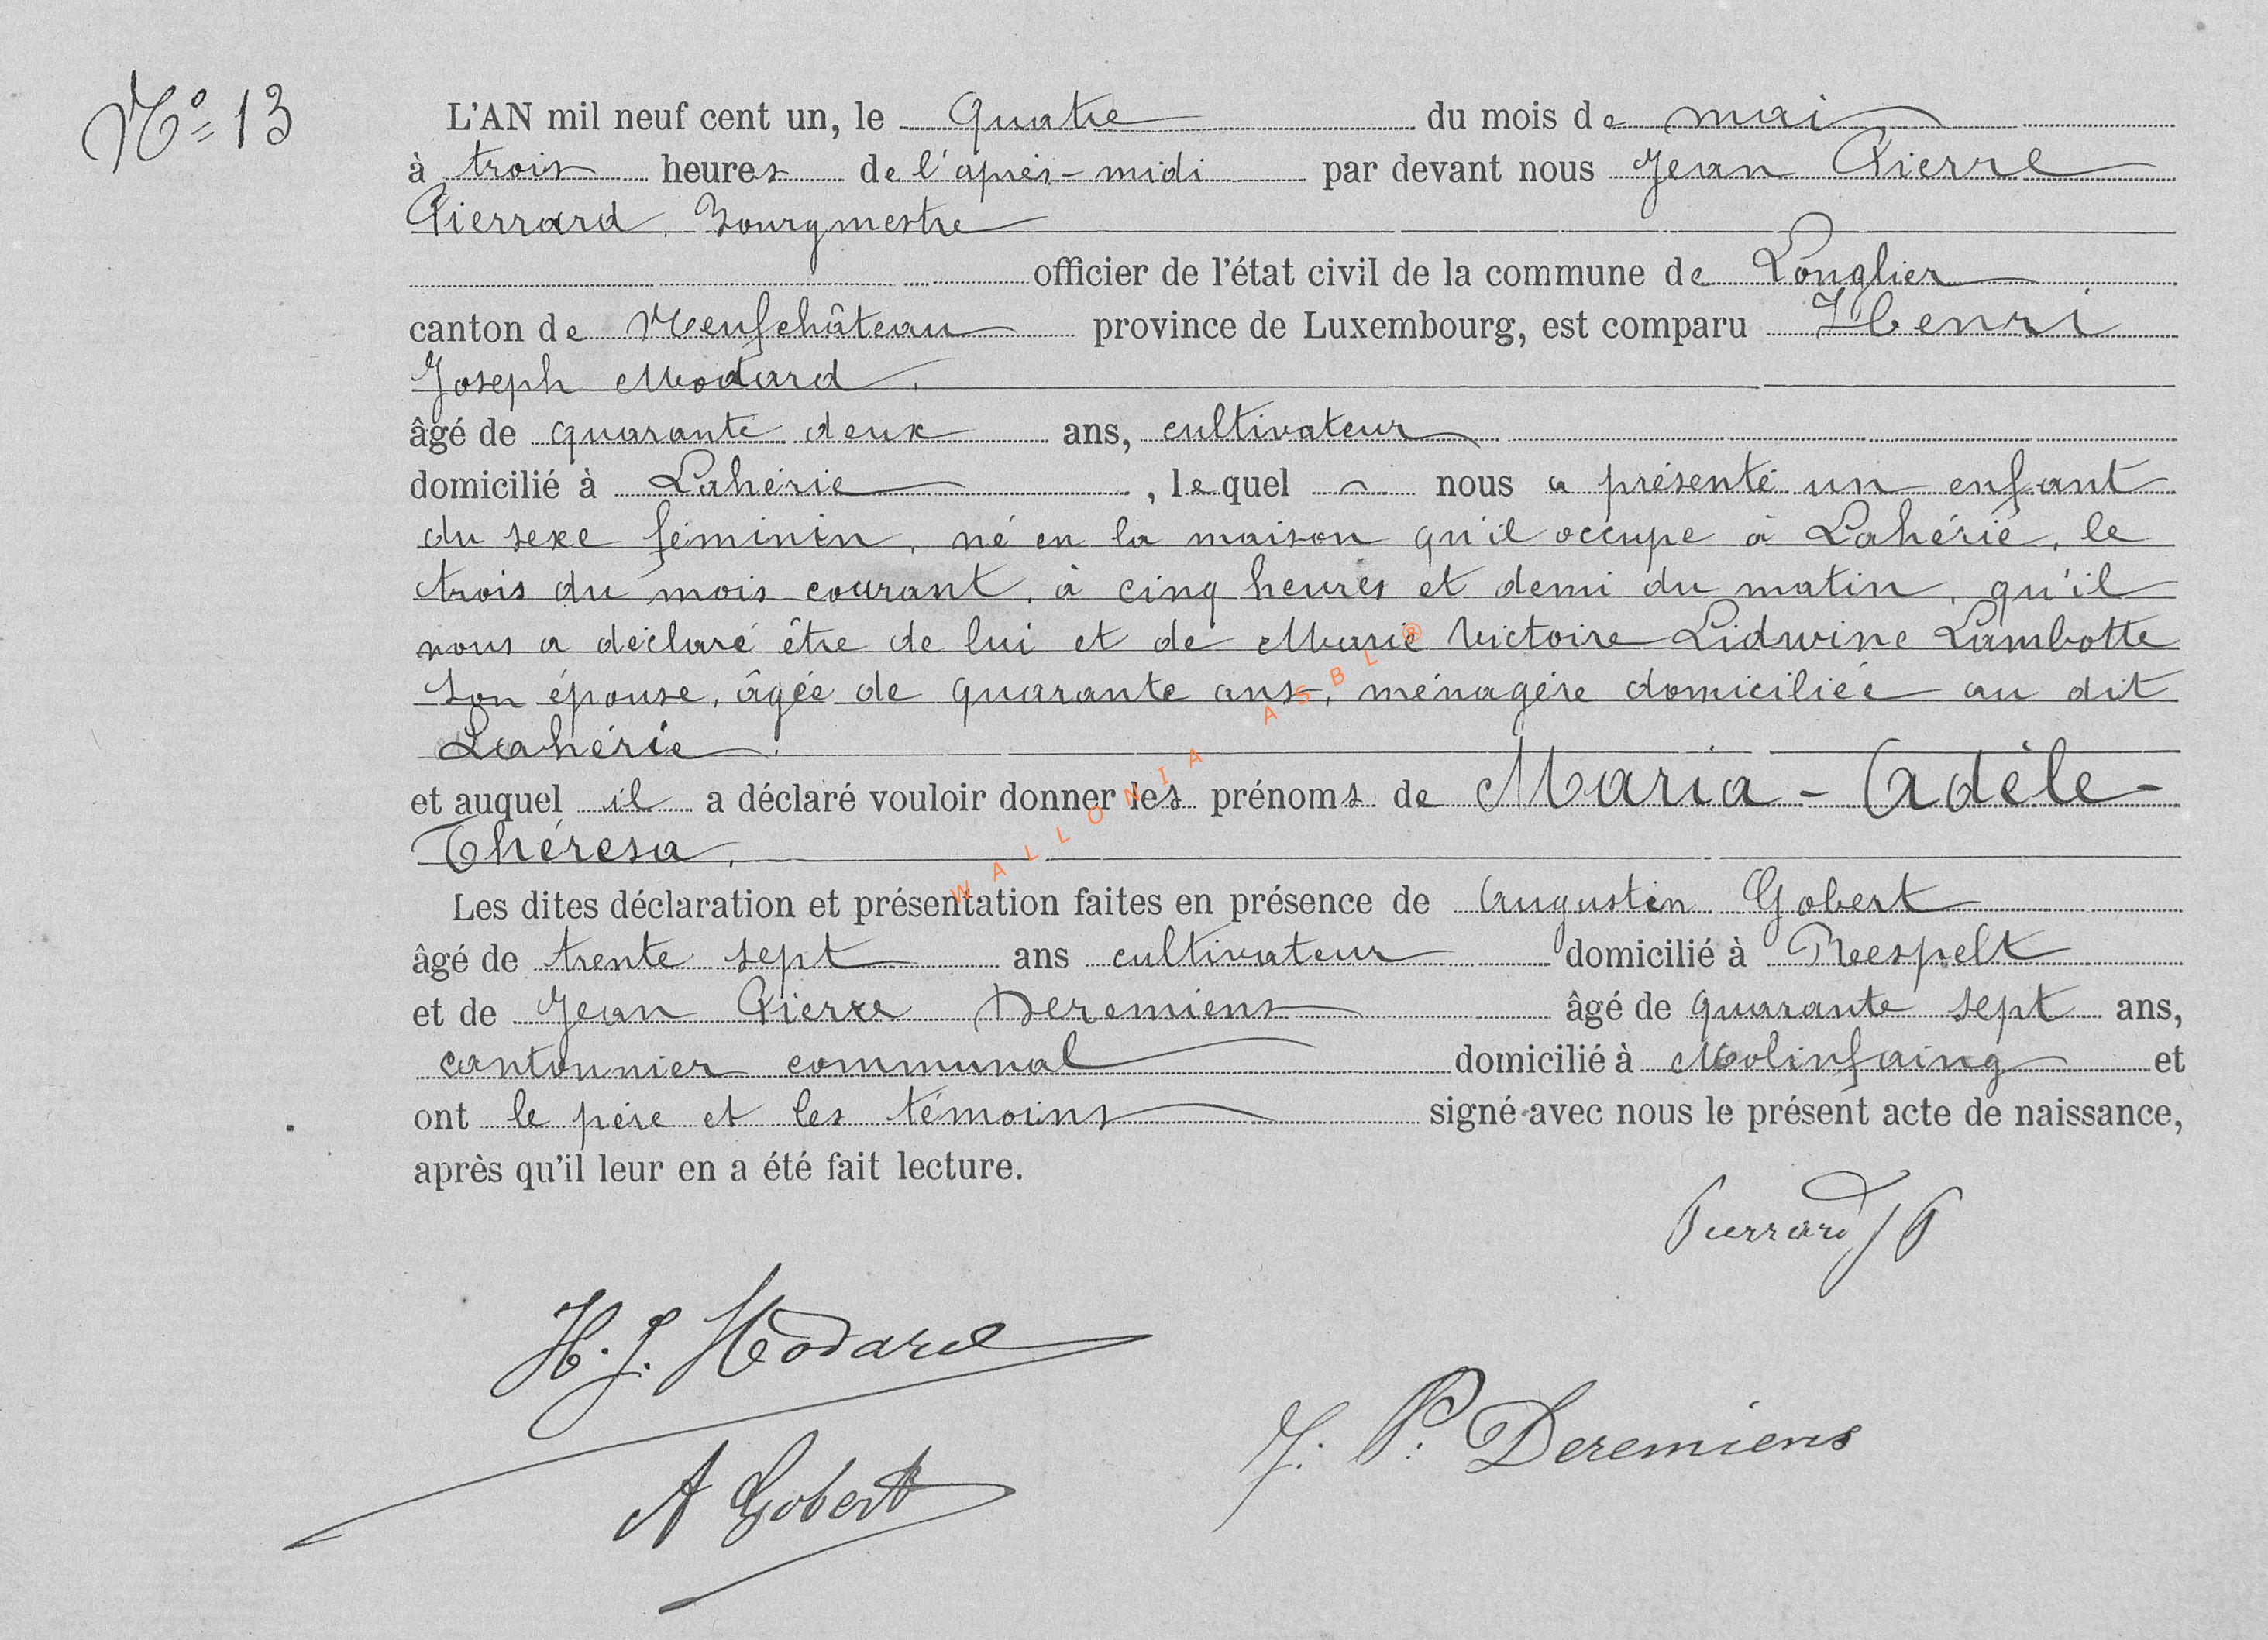 N° 13
L'AN mil neuf cent un, le quatre du mois de mai
à trois heures de l'après-midi par devant nous Jean Pierre
Pierrard, Bourgmestre
officier de l'état civil de la commune de Longlier
canton de Neufchâteau province de Luxembourg, est comparu Henri
Joseph Modard,
âgé de quarante deux ans, cultivateur
domicilié à Lahérie, lequel nous a présenté un enfant
du sexe féminin, né en la maison qu'il occupe à Lahérie, le
trois du mois courant, à cinq heures et demi du matin, qu'il
nous a déclaré être de lui et de Marie Victoire Lidwine Lambotte
son épouse, âgée de quarante ans, ménagère domiciliée au dit
Lahérie.
et auquel il a déclaré vouloir donner les prénoms de Maria-Adèle-
Thérésa,
Les dites déclaration et présentation faites en présence de Augustin Gobert
âgé de trente sept ans cultivateur domicilié à Respelt
et de Jean Pierre Deremiens âgé de quarante sept ans,
cantonnier communal domicilié à Molinfaing et
ont le père et les témoins signé avec nous le présent acte de naissance,
après qu'il leur en a été fait lecture.
Pierrard JP
H. J. Modard
J. P. Deremiens
A Gobert
WALLONIA ASBL ®